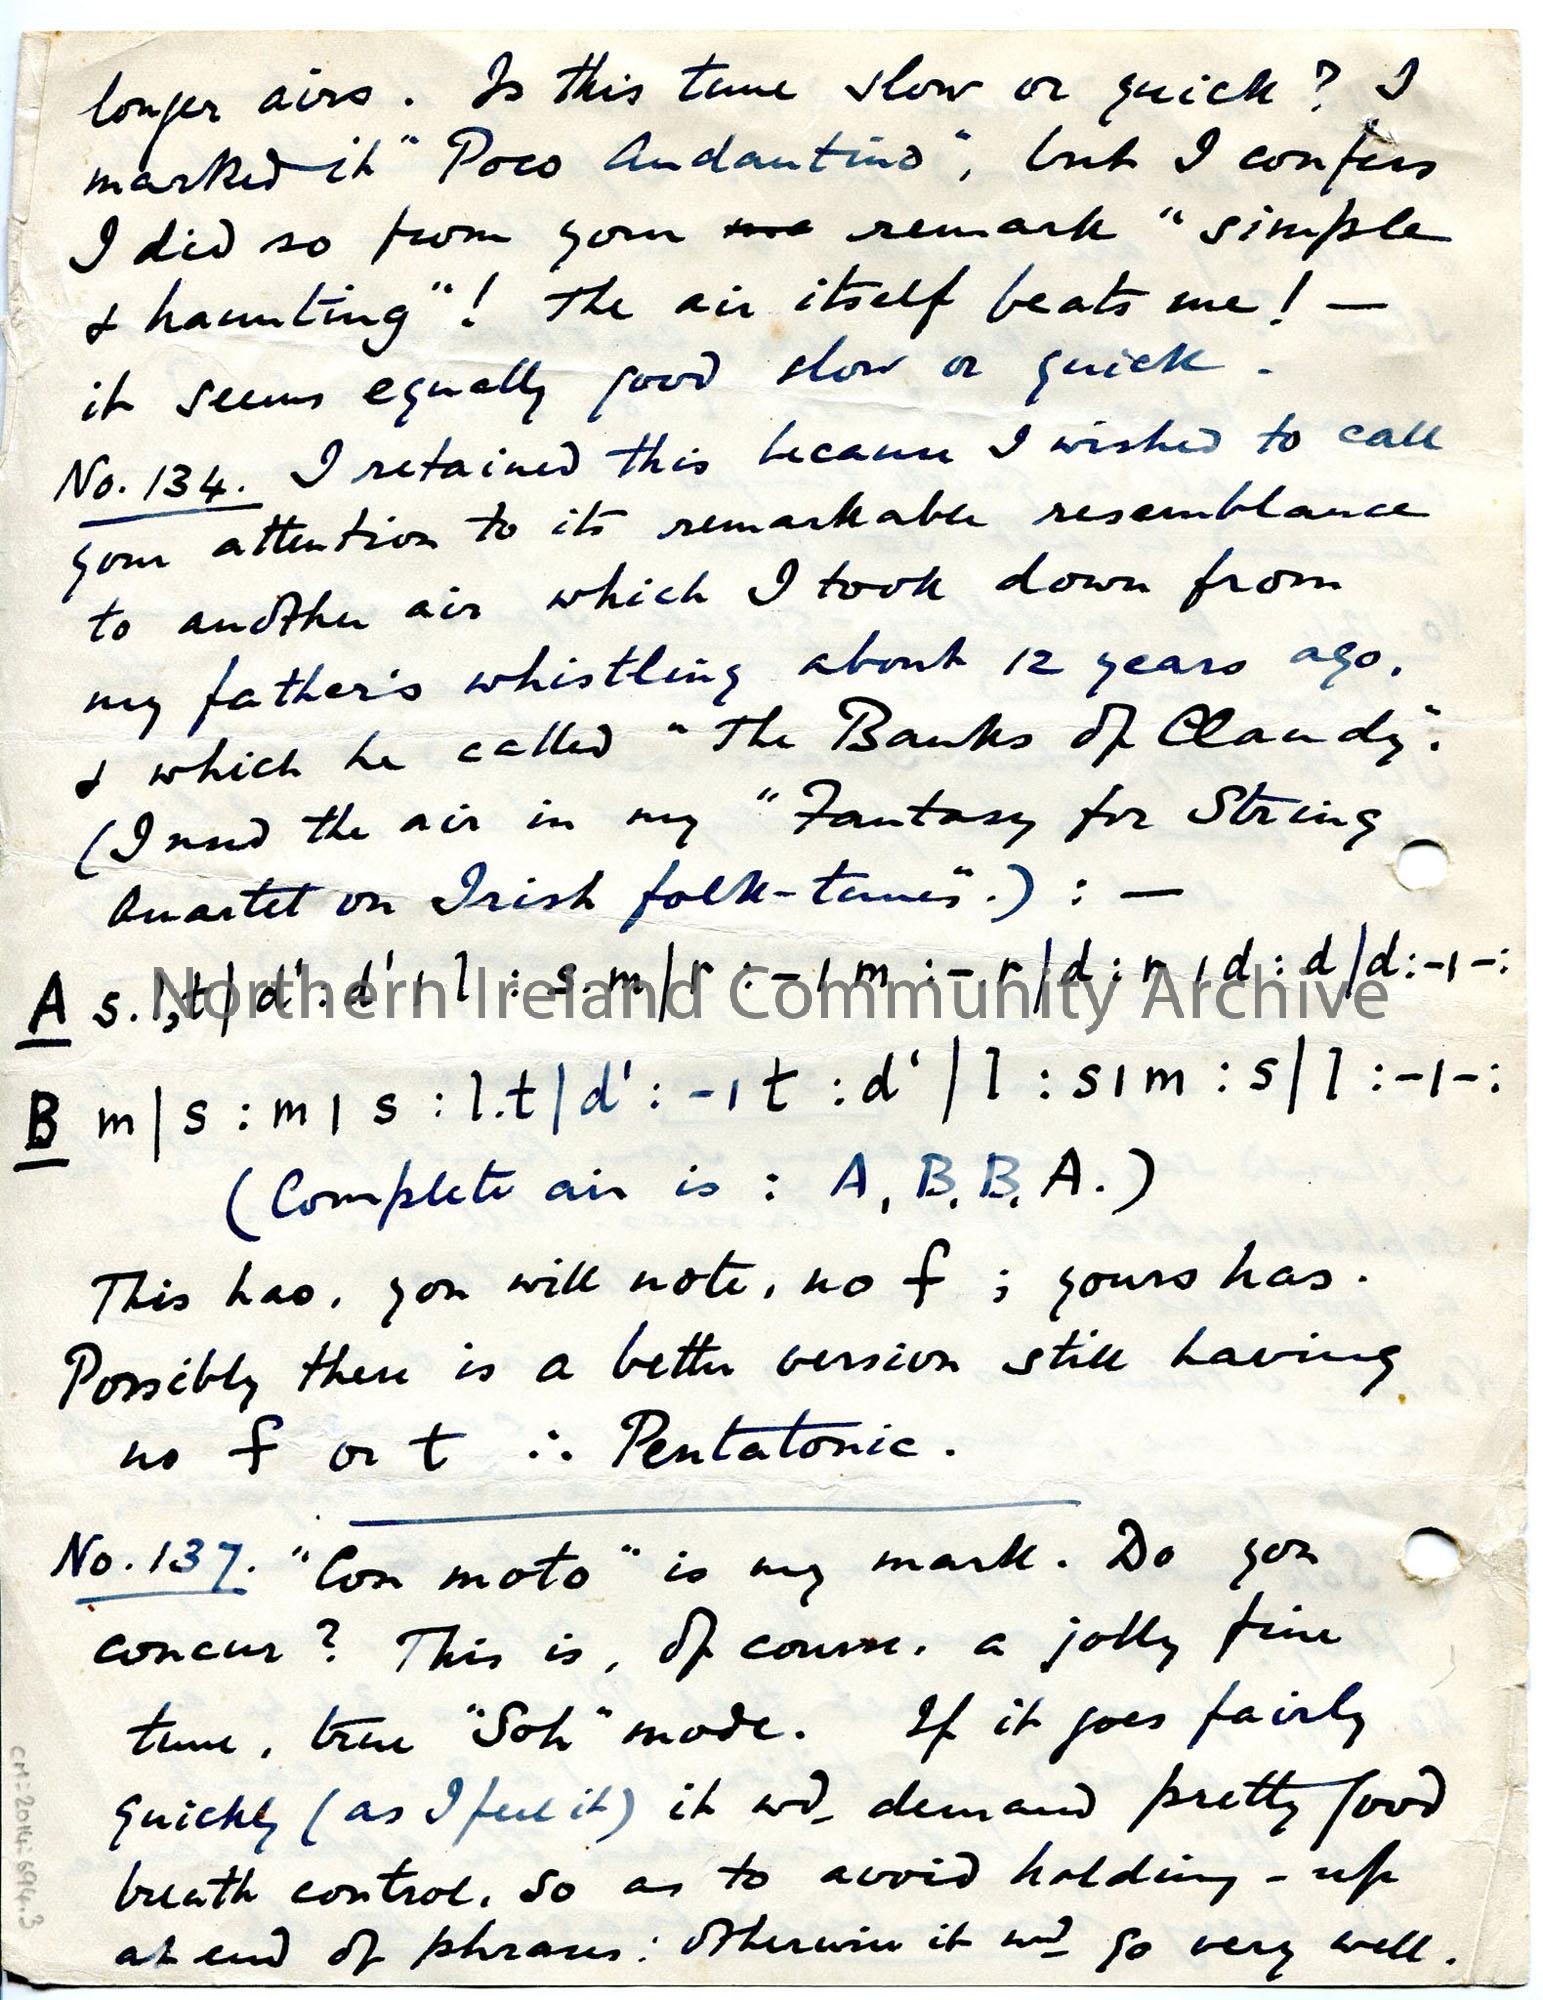 longer airs. Is this tune slow or quick? I
marked it "Poco Andantino", but I confess
I did so from your remark "simple
& haunting"! The air itself beats me! —
it seems equally good slow or quick.
No. 134. I retained this because I wished to call
your attention to its remarkable resemblance
to another air which I took down from
my father's whistling about 12 years ago,
& which he called "The Banks of Claudy".
(I used the air in my "Fantasy for String
Quartet on Irish folk-tunes".) : —
A s.l,t | d' : d' , l : s.m | r : - , m : -.r | d : r , d : d | d : - , - :
B m | s : m , s : l.t | d' : - , t : d' | l : s , m : s | l : - , - :
(Complete air is : A, B, B, A.)
This has, you will note, no f ; yours has.
Possibly there is a better version still having
no f or t ∴ Pentatonic.
No. 137. "Con moto" is my mark. Do you
concur? This is, of course, a jolly fine
tune, true "Soh" mode. If it goes fairly
quickly (as I feel it) it wd demand pretty good
breath control, so as to avoid holding-up
at end of phrases: otherwise it wd go very well.
Northern Ireland Community Archive
CM:2014:694.3